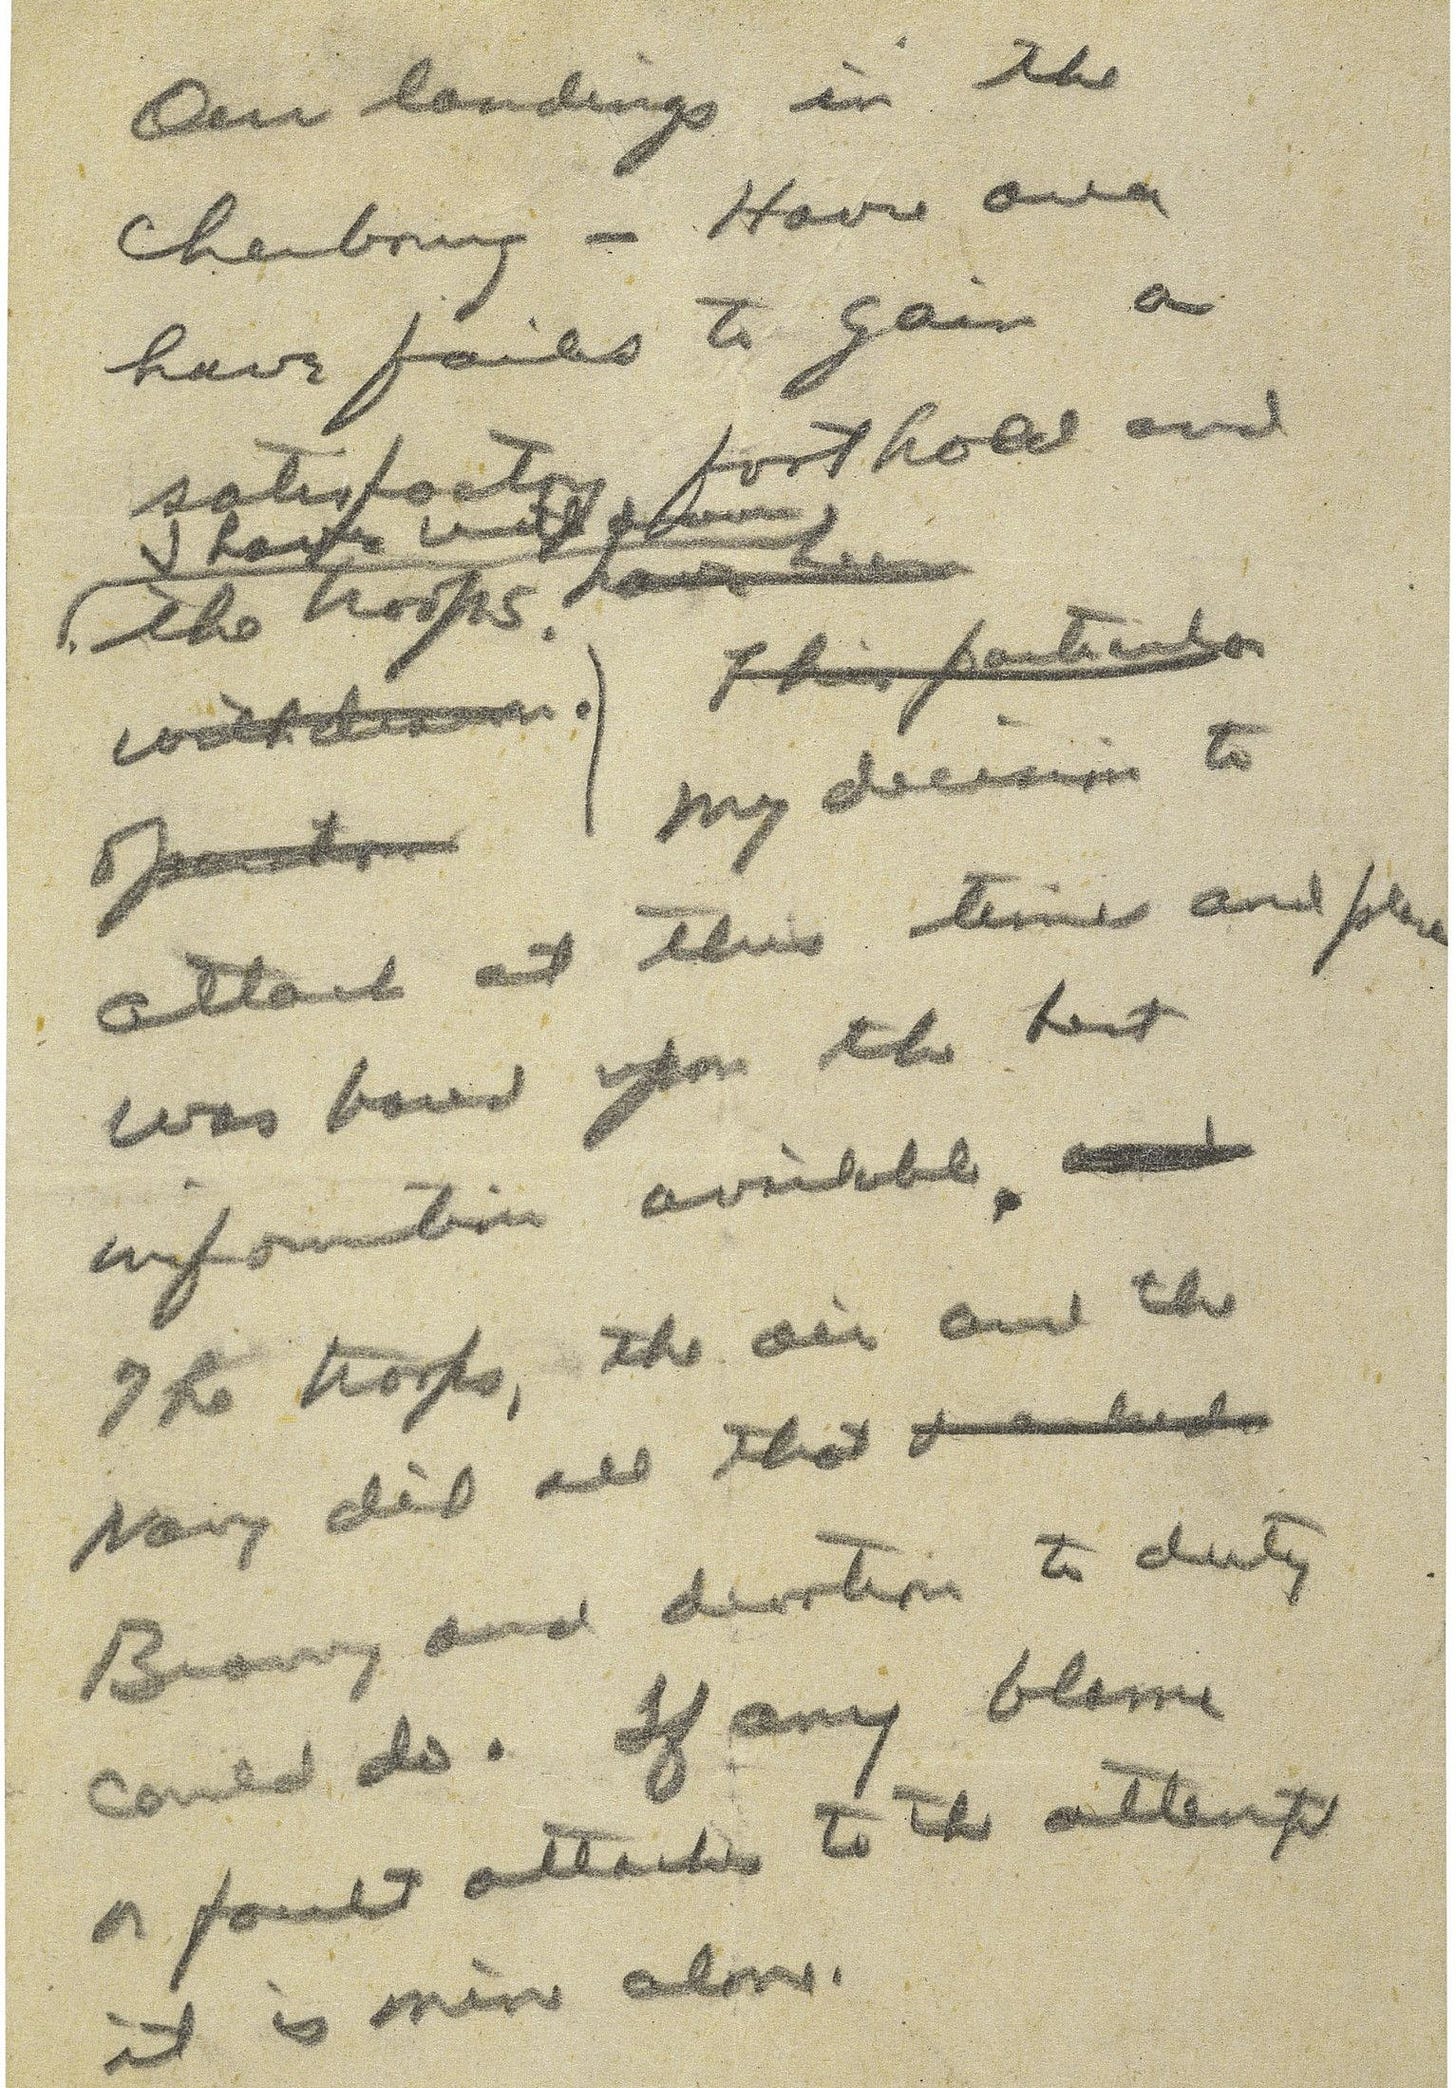 Our landings in the
Cherbourg - Havre area
have failed to gain a
satisfactory foothold and
I have withdrawn
the troops. have been
withdrawn. This particular
operation My decision to
attack at this time and place
was based upon the best
information available. and
The troops, the air and the
Navy did all that
Bravery and devotion to duty
could do. If any blame
or fault attaches to the attempt
it is mine alone.